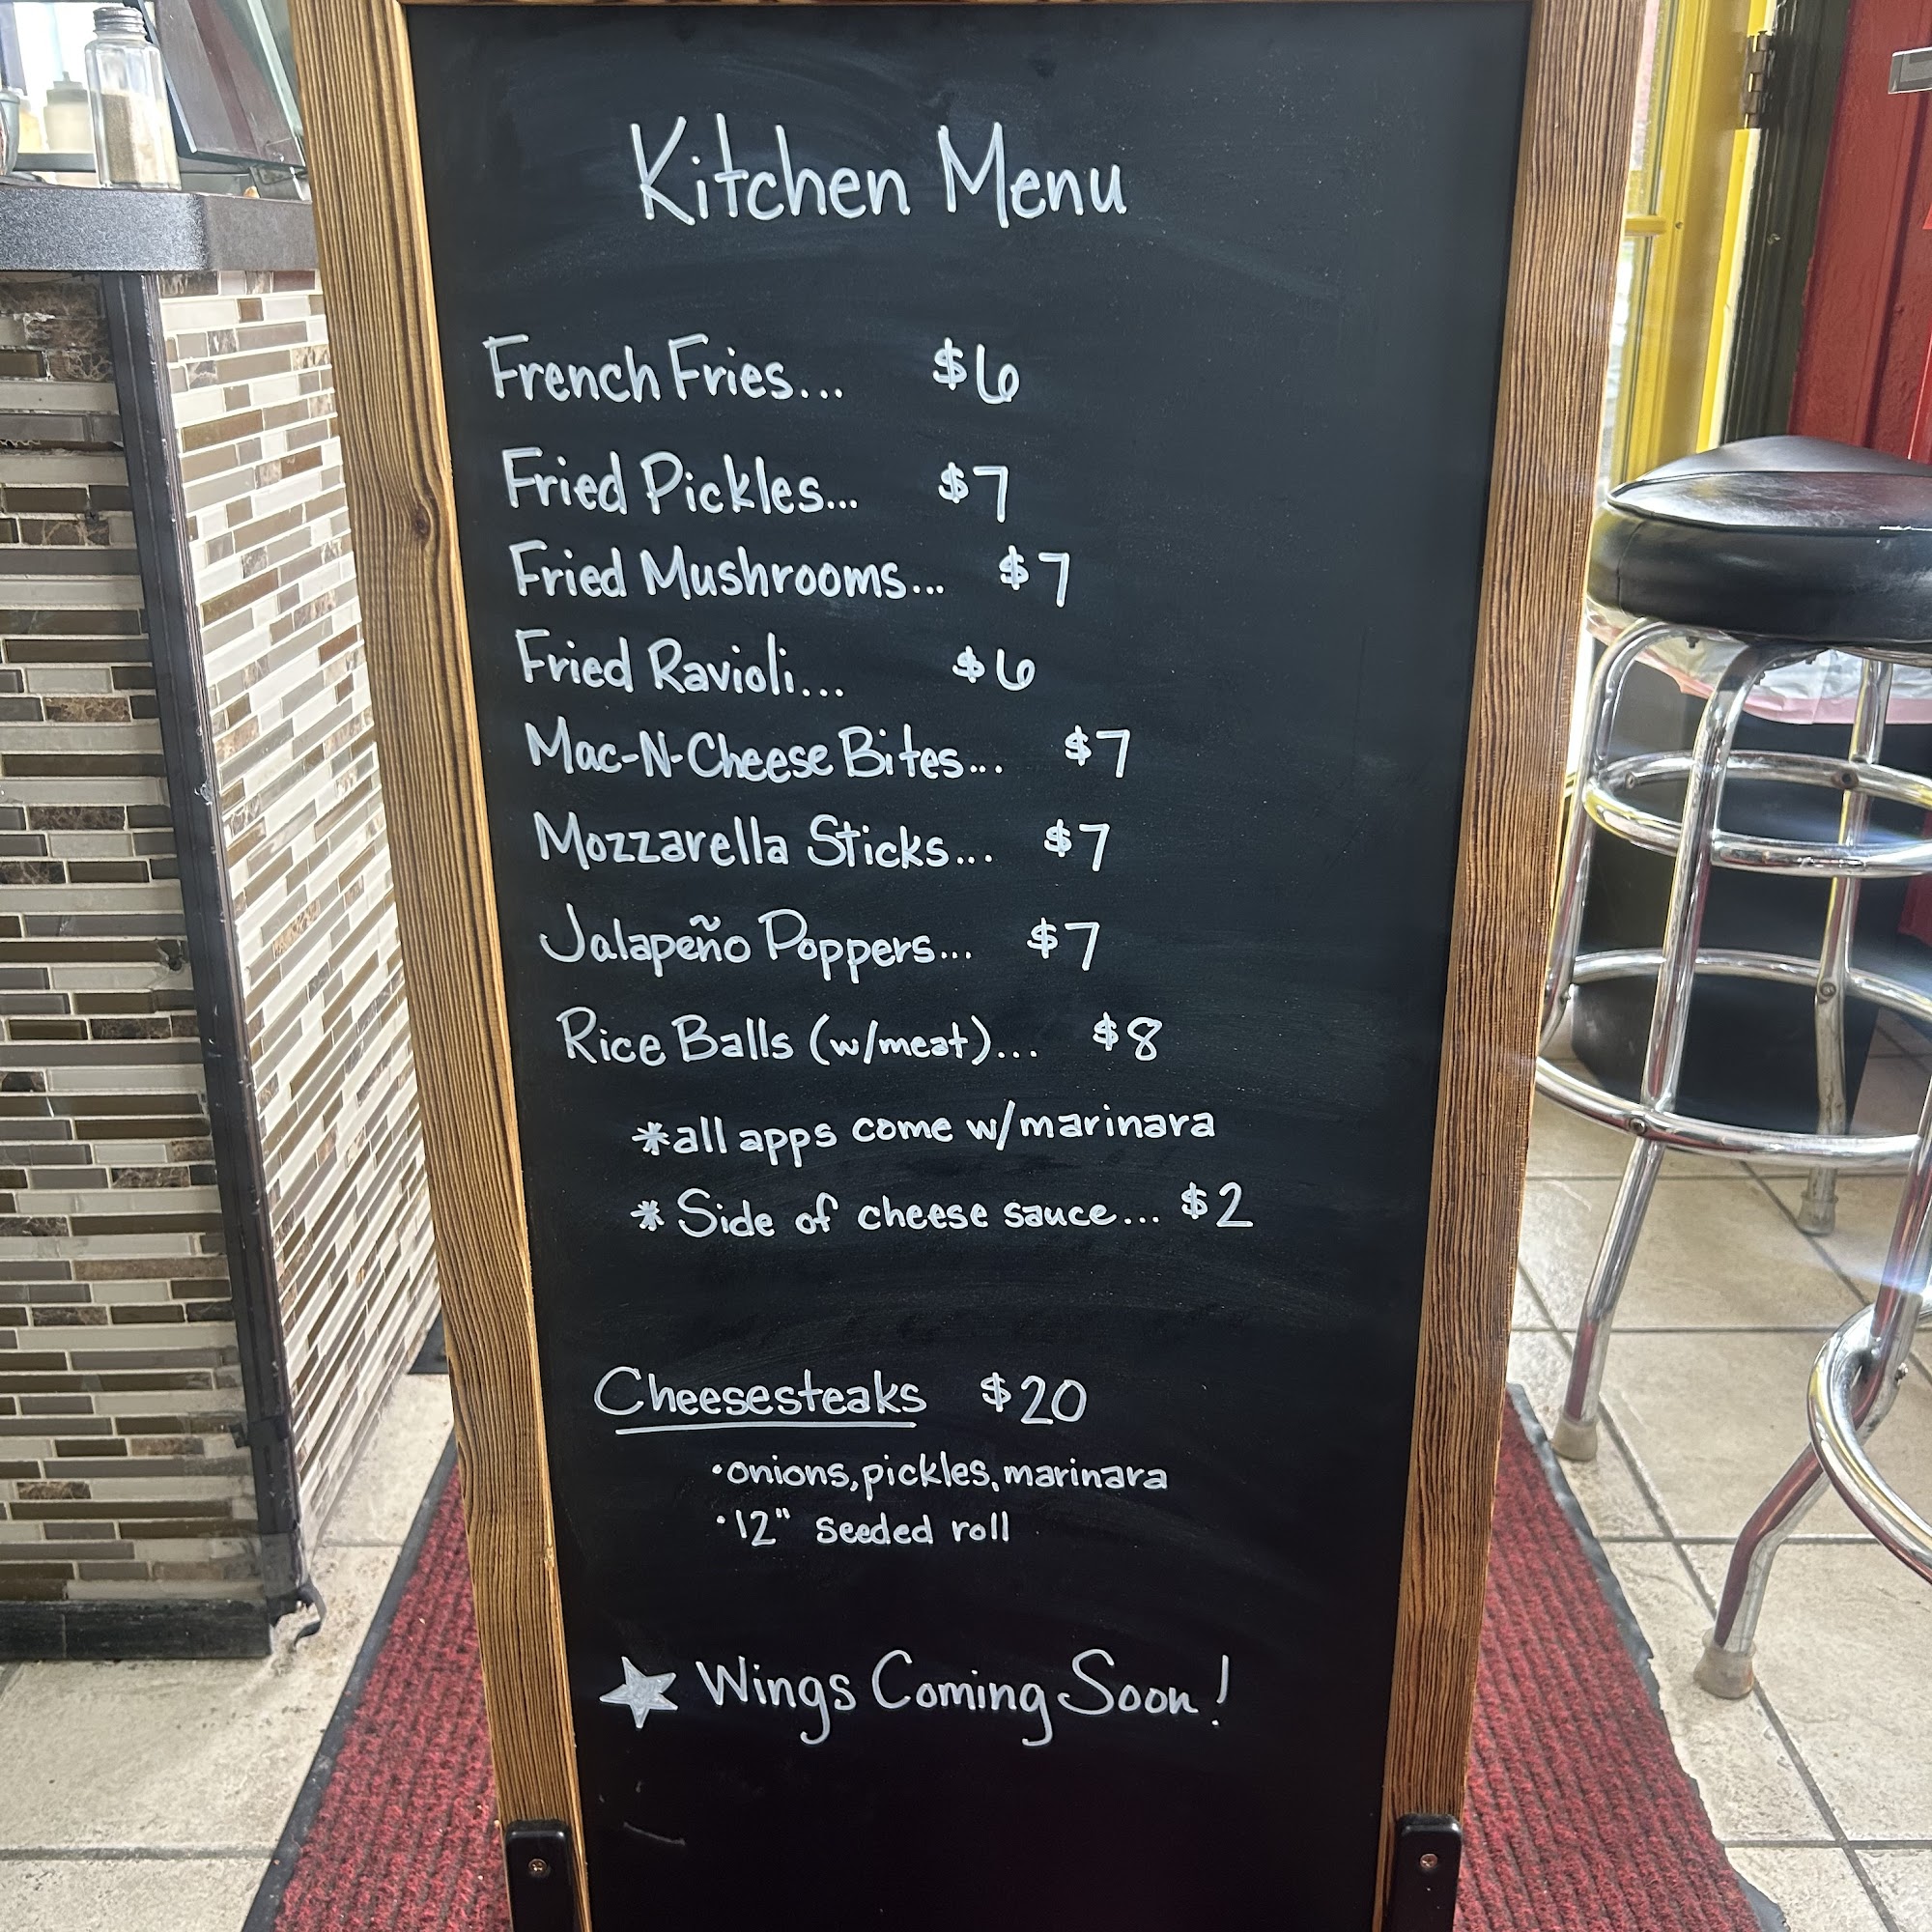 Kitchen Menu
French Fries... $6
Fried Pickles... $7
Fried Mushrooms... $7
Fried Ravioli... $6
Mac-N-Cheese Bites... $7
Mozzarella Sticks... $7
Jalapeño Poppers... $7
Rice Balls (w/meat)... $8
*all apps come w/marinara
* Side of cheese sauce... $2
Cheesesteaks $20
•onions, pickles, marinara
•12" seeded roll
★ Wings Coming Soon!